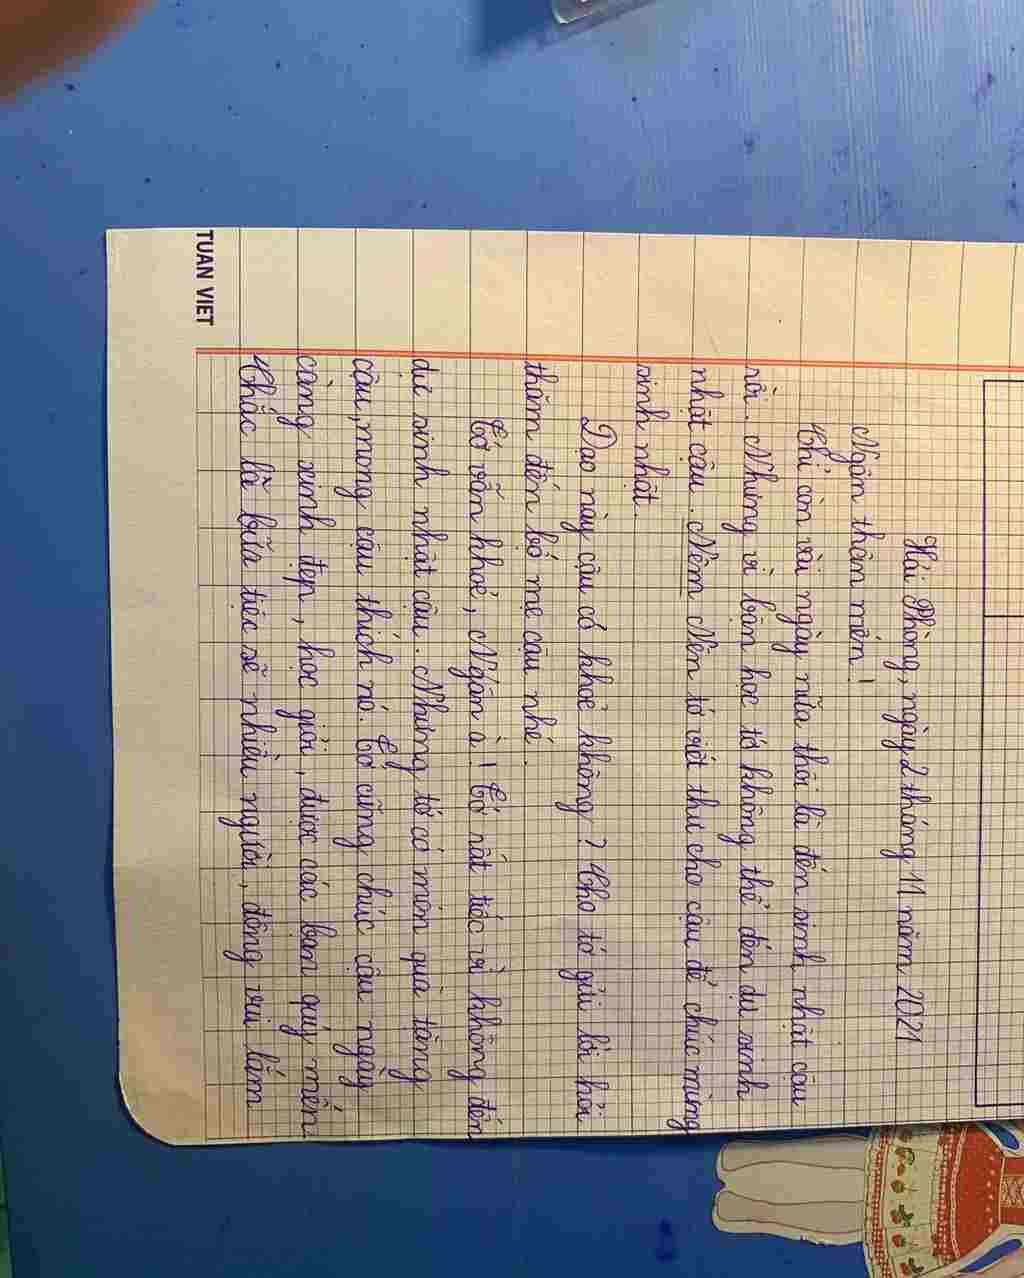 Hải Phòng, ngày 2 tháng 11 năm 2021
Ngân thân mến!
Chỉ còn vài ngày nữa thôi là đến sinh nhật cậu
rồi. Nhưng vì bận học tớ không thể đến dự sinh
nhật cậu. Nêm Nên tớ viết thư cho cậu để chúc mừng
sinh nhật.
Dạo này cậu có khoẻ không? Cho tớ gửi lời hỏi
thăm đến bố mẹ cậu nhé.
Tớ vẫn khoẻ, Ngân à! Tớ rất tiếc vì không đến
dự sinh nhật cậu. Nhưng tớ có món quà tặng
cậu, mong cậu thích nó. Tớ cũng chúc cậu ngày
càng xinh đẹp, học giỏi, được các bạn quý mến.
Chắc là bữa tiệc sẽ nhiều người, đông vui lắm
TUAN VIET